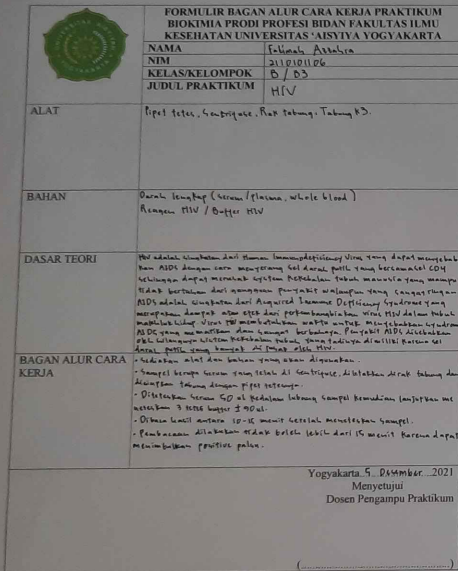 FORMULIR BAGAN ALUR CARA KERJA PRAKTIKUM
BIOKIMIA PRODI PROFESI BIDAN FAKULTAS ILMU
KESEHATAN UNIVERSITAS 'AISYIYA YOGYAKARTA
NAMA Fatimah Azzahra
NIM 2110101106
KELAS/KELOMPOK B / B3
JUDUL PRAKTIKUM HIV
ALAT
Pipet tetes, Sentrifuse, Rak tabung, Tabung K3.
BAHAN
Darah lengkap (serum/plasma, whole blood)
Reagen HIV / Buffer HIV
DASAR TEORI
HIV adalah singkatan dari Human Immunodeficiency Virus yang dapat menyebab
kan AIDS dengan cara menyerang sel darah putih yang bernama sel CD4
sehingga dapat merusak system kekebalan tubuh manusia yang mampu
tidak bertahan dari gangguan penyakit walaupun yang sangat ringan
AIDS adalah singkatan dari Acquired Immune Deficiency Syndrome yang
merupakan dampak atau efek dari perkembangbiakan virus HIV dalam tubuh
makhluk hidup. Virus HIV membutuhkan waktu untuk menyebabkan Syndrom
AIDS yang mematikan dan sangat berbahaya. Penyakit AIDS disebabkan
oleh hilangnya sistem kekebalan tubuh, yang tadinya dimiliki karena sel
darah putih yang banyak dirusak oleh HIV.
BAGAN ALUR CARA
KERJA
- Sediakan alat dan bahan yang akan digunakan.
- Sampel berupa serum yang telah di sentrifuse, diletakkan dirak tabung dan
disiapkan tabung dengan pipet tetesnya.
- Diteteskan serum 50 ul kedalam lubang sampel kemudian lanjutkan me
neteskan 3 tetes buffer ± 90 ul.
- Dibaca hasil antara 10-15 menit setelah meneteskan sampel.
- Pembacaan dilakukan tidak boleh lebih dari 15 menit karena dapat
menimbulkan positive palsu.
Yogyakarta 5 Desember 2021
Menyetujui
Dosen Pengampu Praktikum
(..............................)